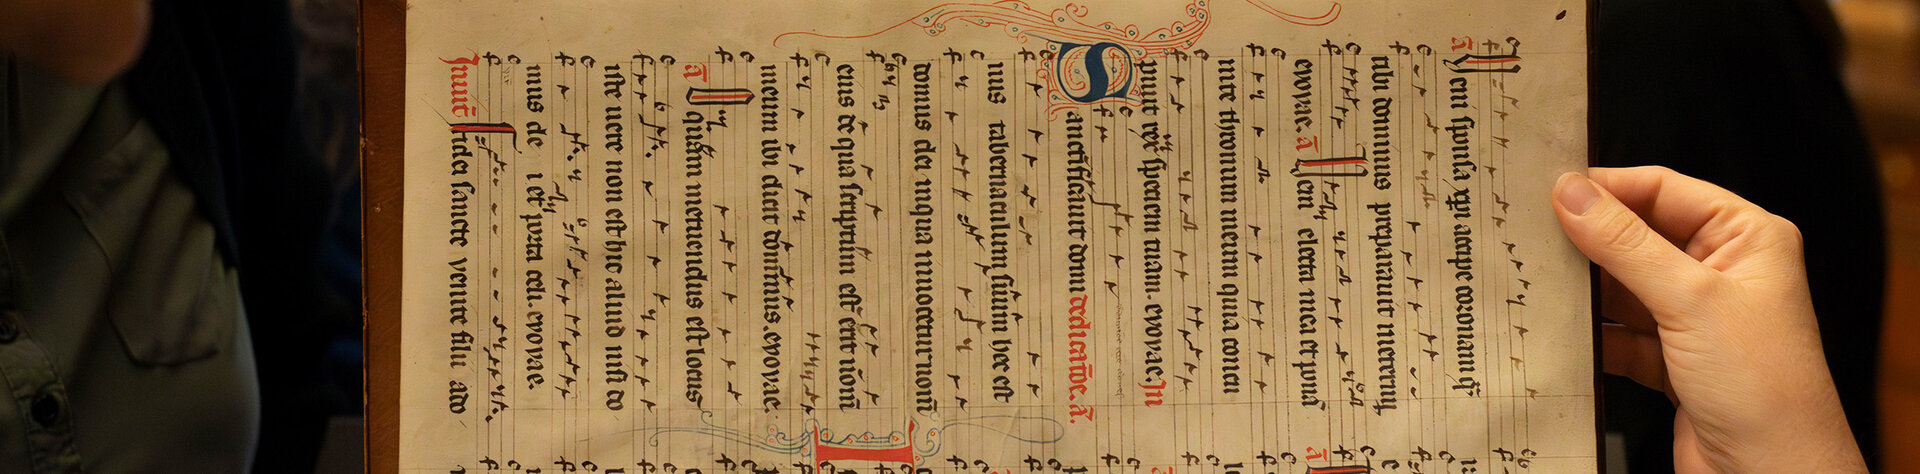 ā Veni sponsa xp̄i accipe coronam q̄
tibi dominus preparauit ineternū
evovae. ā Veni electa mea et ponā
inte thronum meum quia concu
piuit rex speciem tuam. evovae. In
Sanctificauit domi dedicac̄oe. ā.
nus tabernaculum suum hec est
domus dei inqua inuocetur nom̄
eius de qua scriptum est erit nom̄
meum ibi dicit dominus. evovae.
ā O quam metuendus est locus
iste uere non est hic aliud nisi do
mus de i et porta celi. evovae.
Inuit̄ Fidei sancte venite filii ado